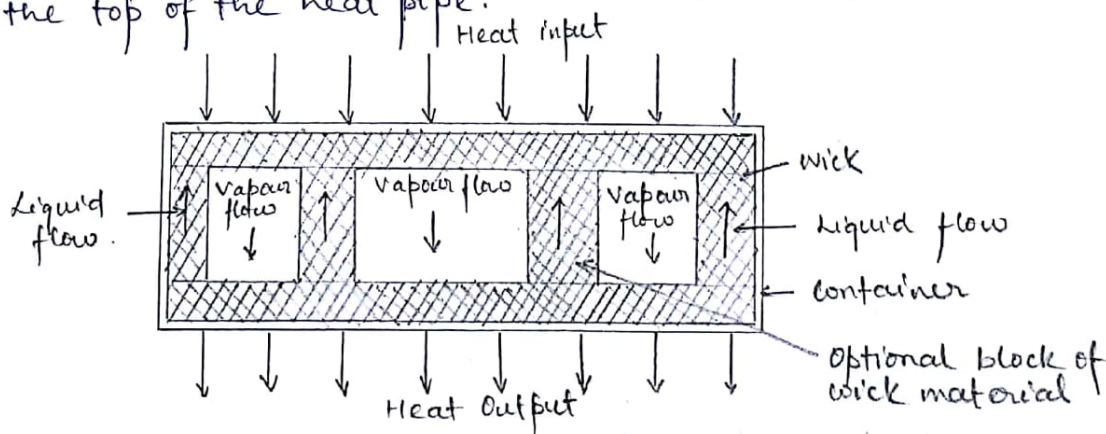 the top of the heat pipe.
Heat input
wick
Vapour
flow
Vapour flow
Vapour
flow
Liquid
flow.
Liquid flow
container
Optional block of
wick material
Heat Output